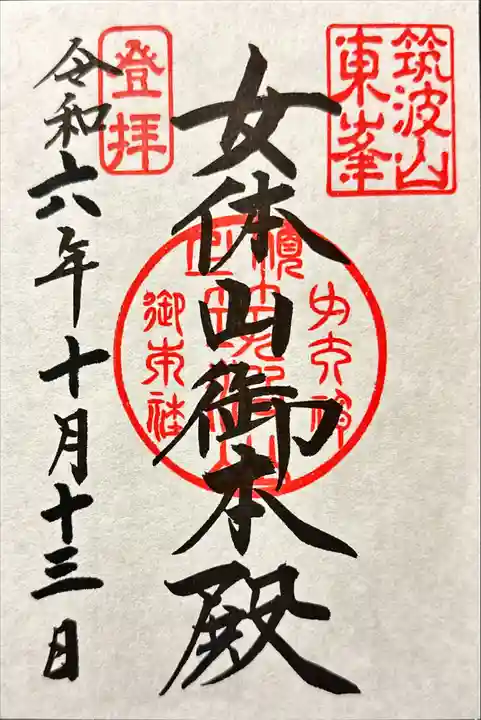 筑波山
東峯
女体山御本殿
登拝
令和六年十月十三日